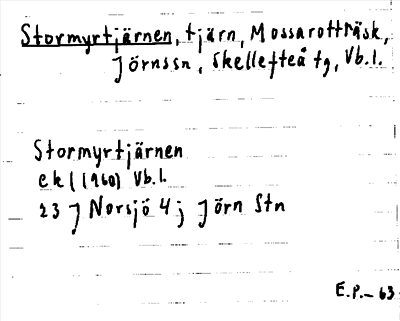 Stormyrtjärnen, tjärn, Mossarotträsk,
Jörnssn, Skellefteå tg, Vb.l.
Stormyrtjärnen
ek (1960) Vb.l.
23 J Norsjö 4 j Jörn Stn
E.P.–63